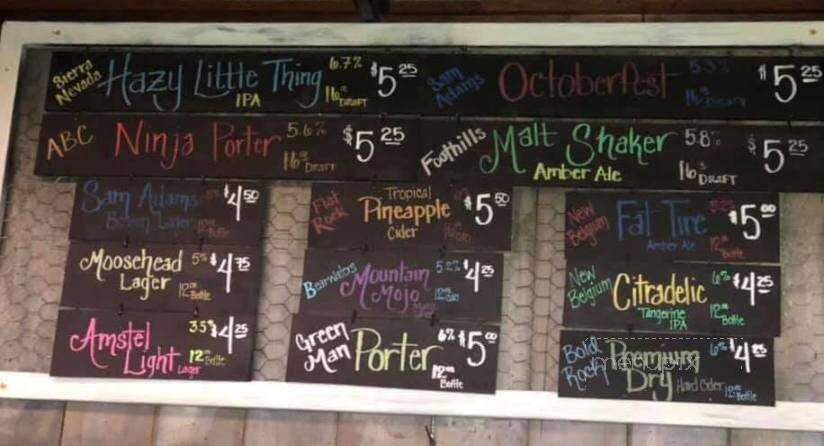 Sierra Nevada Hazy Little Thing 6.7% $5 25
IPA 16oz Draft
Sam Adams Octoberfest 5.3% $5 25
16oz Draft
ABC Ninja Porter 5.6% $5 25
16oz Draft
Foothills Malt Shaker 5.8% $5 25
Amber Ale 16oz Draft
Sam Adams $4 50
Boston Lager
Flat Rock Tropical Pineapple Cider $5 50
New Belgium Fat Tire 5.2% $5 00
Amber Ale 12oz Bottle
Moosehead 5% $4 75
Lager 12oz Bottle
Mountain Mojo 5.2% $4 25
New Belgium Citradelic 6% $4 25
Tangerine IPA 12oz Bottle
Amstel Light 3.5% $4 25
Lager 12oz Bottle
Green Man Porter 6% $5 00
12oz Bottle
Bold Rock Premium Dry 6% $4 25
Hard Cider 12oz Bottle